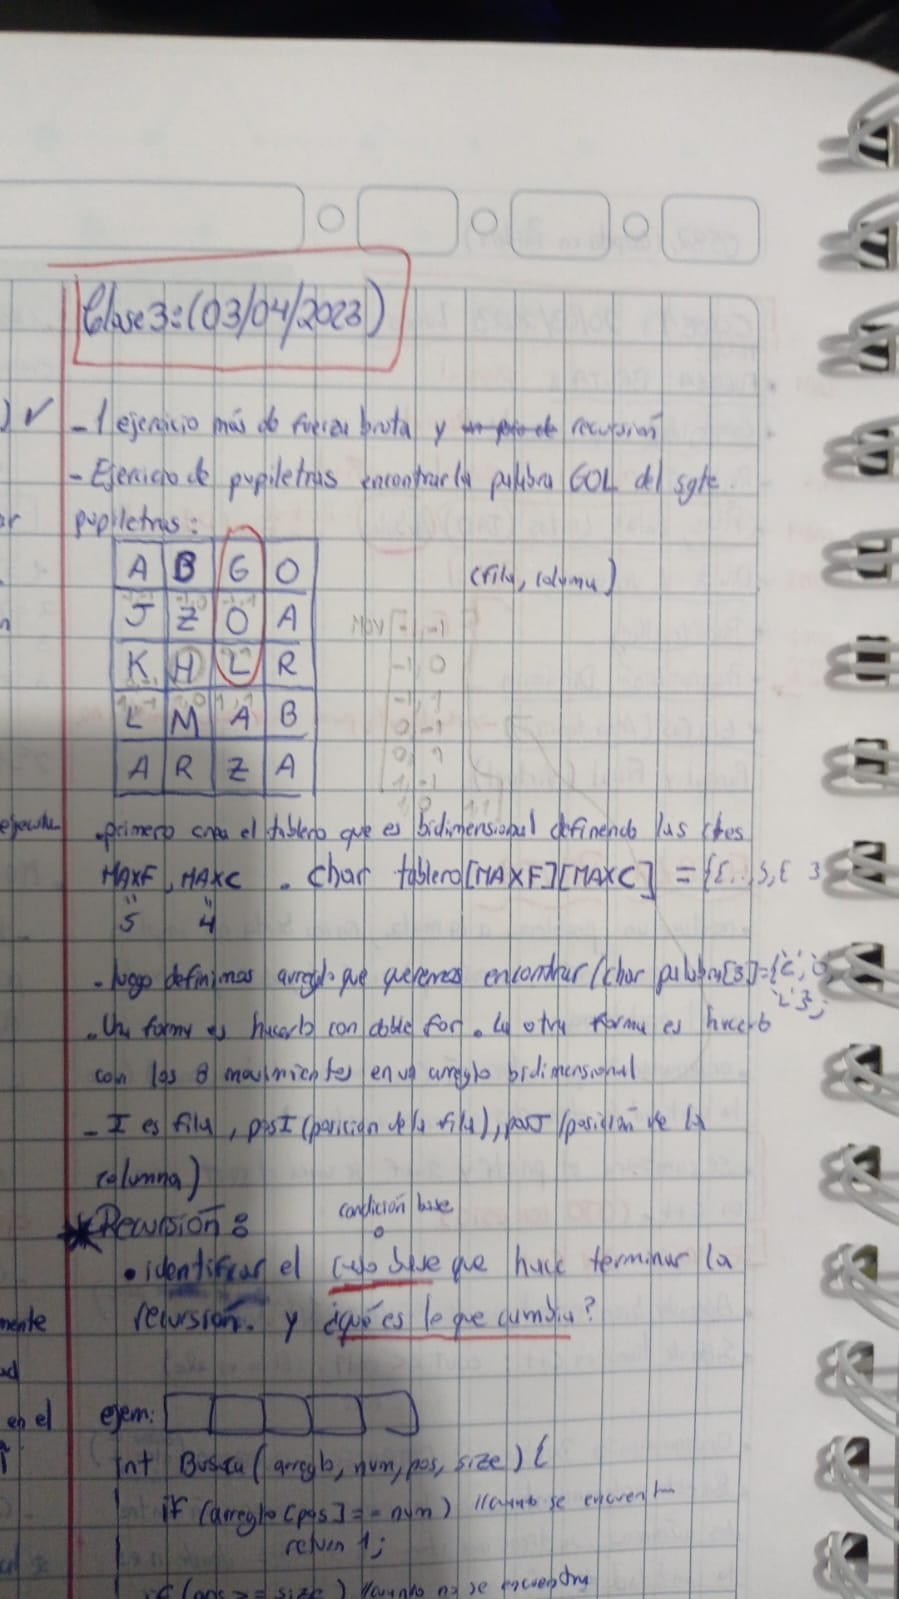 Clase 3: (03/04/2023)
) ✓ - 1 ejercicio más de fuerza bruta y recursión
- Ejercicio de pupiletras encontrar la palabra GOL del sgte
pupiletras:
A B G O
J Z O A
K H L R
L M A B
A R Z A
(fila, columna)
MOV
-1,-1
-1,0
-1,1
0,-1
0,1
1,-1
1,0 1,1
ejecuta
.primero crea el tablero que es bidimensional definiendo las ctes
MAXF, MAXC . char tablero[MAXF][MAXC] = {{..},{ }
5 4
- luego definimos arreglo que queremos encontrar (char palabra[3]={'G', 'O
'L'};
. Una forma es hacerlo con doble for. La otra forma es hacerlo
con los 8 movimientos en un arreglo bidimensional
- I es fila, posI (posición de la fila), posJ (posición de la
columna)
condición base
* Recursión:
• identificar el caso base que hace terminar la
recursión. y ¿qué es lo que cambia?
mente
ad
en el
ejem:
int Busca (arreglo, num, pos, size) {
if (arreglo [pos] == num) //cuando se encuentra
return 1;
if (pos == size) //cuando no se encuentra